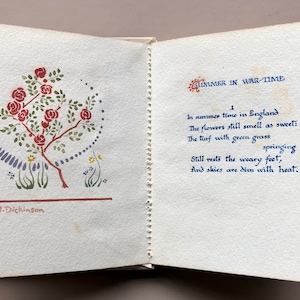 H. Dickinson
SUMMER IN WAR-TIME
1
In summer time in England
The flowers still smell as sweet:
The turf with green grass
springing
Still rests the weary feet,
And skies are dim with heat.